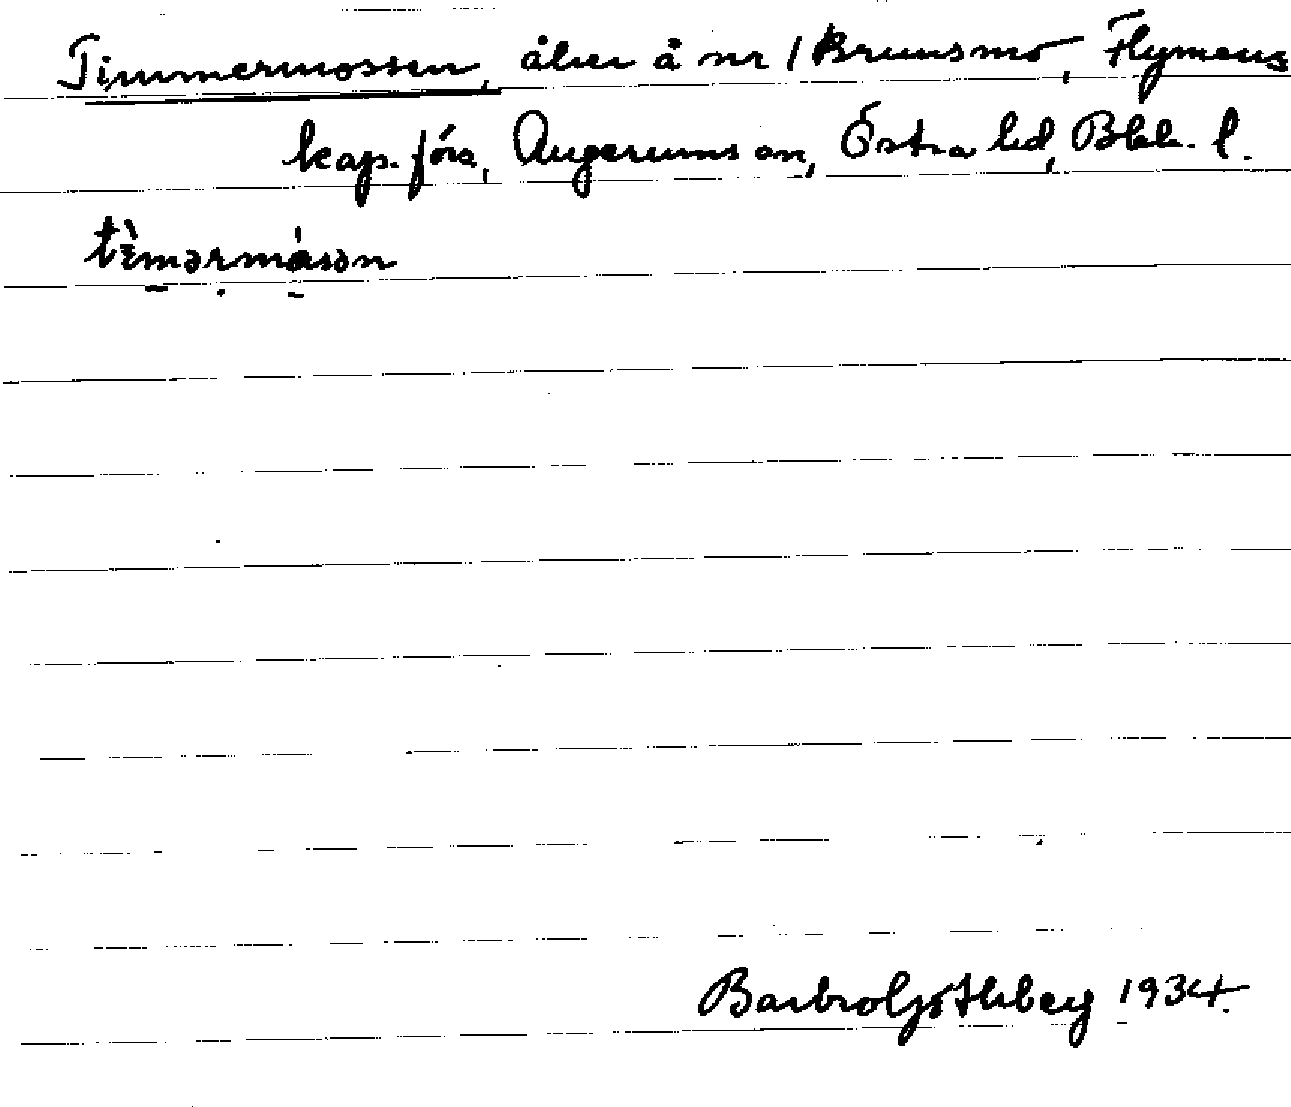 Timmermossen, åker å nr 1 Brunsmo, Flymens
kap.förs, Augerums sn, Östra hd, Blek. l.
tìmərmåsən
Barbro Göthberg 1934.